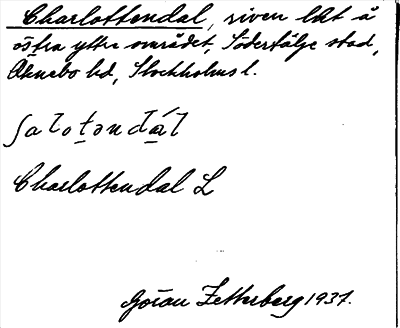 Charlottendal, riven lht å
östra yttre området, Södertälje stad,
Öknebo hd, Stockholms l.
ʃalotəndál
Charlottendal L
Göran Zetterberg 1937.